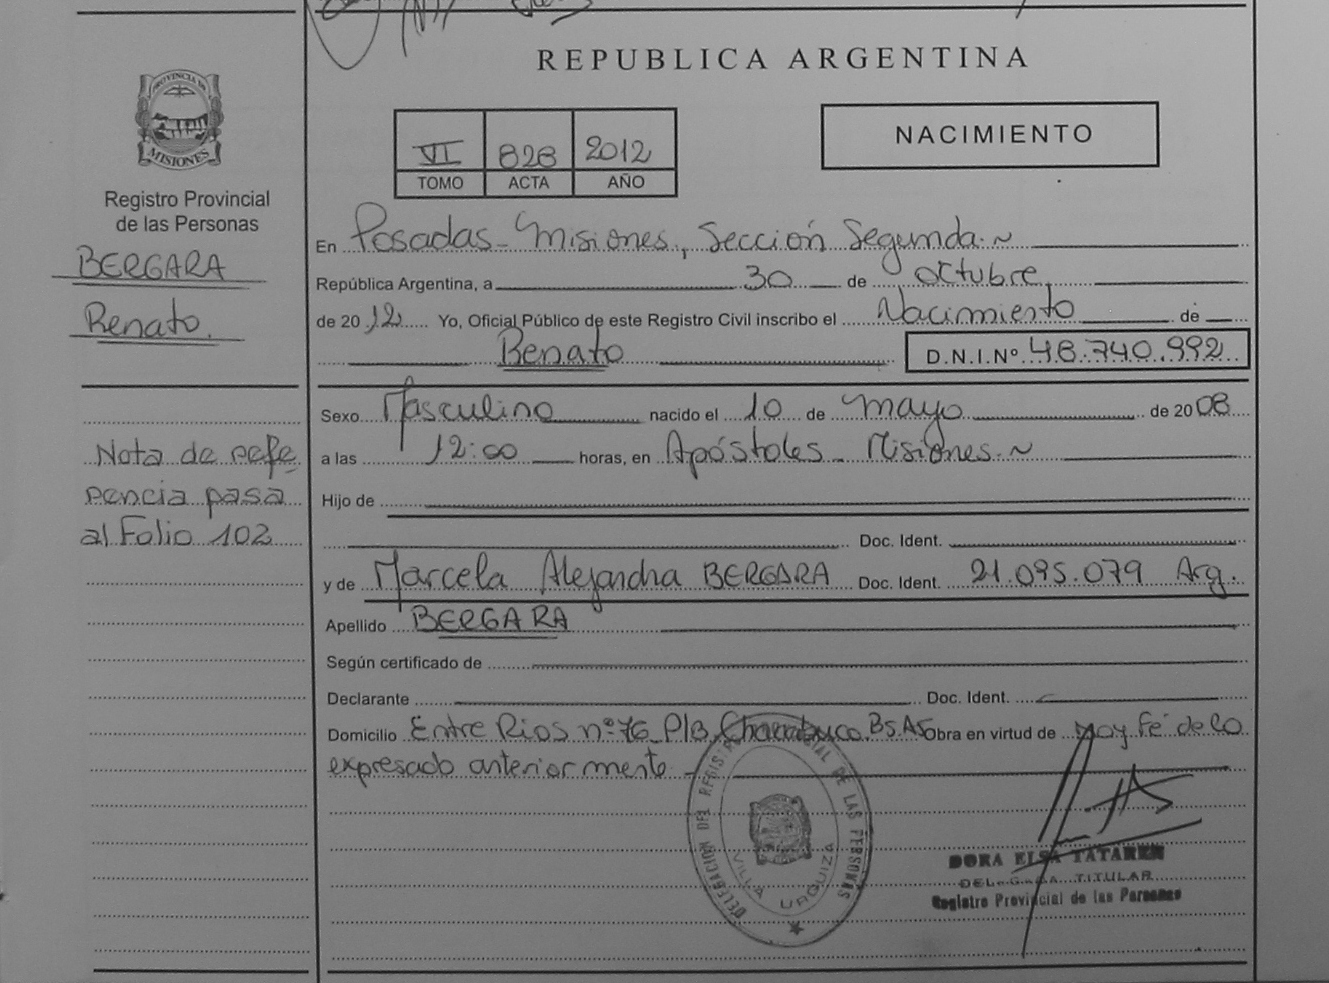 REPUBLICA ARGENTINA
PROVINCIA DE
MISIONES
Registro Provincial
de las Personas
BERGARA
Renato.
Nota de refe
rencia pasa
al Folio 102
VI 828 2012
TOMO ACTA AÑO
NACIMIENTO
En Posadas - Misiones, Sección Segunda.~
República Argentina, a 30 de octubre
de 2012 Yo, Oficial Público de este Registro Civil inscribo el Nacimiento de
Renato D.N.I.Nº 48.740.992
Sexo Masculino nacido el 10 de mayo de 2008
a las 12:00 horas, en Apóstoles - Misiones.~
Hijo de
Doc. Ident.
y de Marcela Alejandra BERGARA Doc. Ident. 21.095.079 Arg.
Apellido BERGARA
Según certificado de
Declarante Doc. Ident.
Domicilio Entre Rios nº 76 P/B. Chacabuco. Bs.As Obra en virtud de Doy fé de lo
expresado anteriormente -
DELEGACION DEL REGISTRO PROVINCIAL DE LAS PERSONAS
VILLA URQUIZA
DORA ELSA TATAREN
DELEGADA TITULAR
Registro Provincial de las Personas